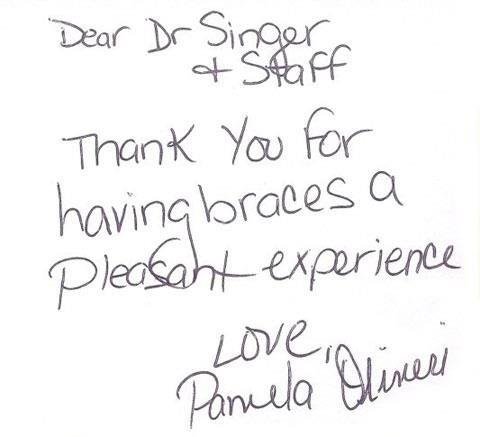 Dear Dr Singer
+ Staff
Thank You for
having braces a
Pleasant experience
Love,
Pamela Olineri